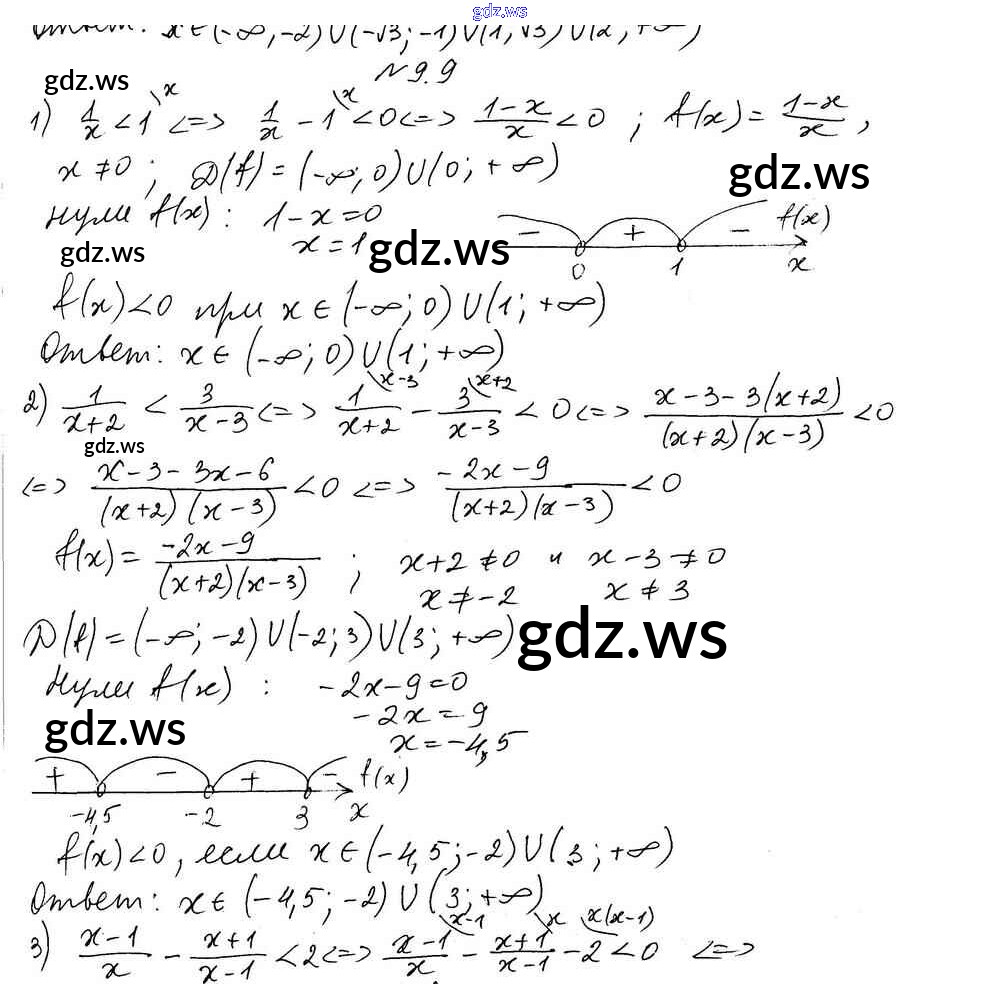 gdz.ws
Ответ: x ∈ (-∞, -2) ∪ (-√3; -1) ∪ (1, √3) ∪ (2, +∞)
№ 9.9
gdz.ws
1) 1/x < 1 \x <=> 1/x - 1 \x < 0 <=> (1-x)/x < 0 ; f(x) = (1-x)/x ,
x ≠ 0 ; D(f) = (-∞; 0) ∪ (0; +∞)
gdz.ws
нули f(x): 1-x=0
x = 1
gdz.ws
gdz.ws
- + - f(x)
0 1 x
f(x)<0 при x ∈ (-∞; 0) ∪ (1; +∞)
Ответ: x ∈ (-∞; 0) ∪ (1; +∞)
2) 1/(x+2) < 3/(x-3) <=> 1\x-3/(x+2) - 3\x+2/(x-3) < 0 <=> (x-3-3(x+2))/((x+2)(x-3)) < 0
gdz.ws
<=> (x-3-3x-6)/((x+2)(x-3)) < 0 <=> (-2x-9)/((x+2)(x-3)) < 0
f(x) = (-2x-9)/((x+2)(x-3)) ; x+2 ≠ 0 и x-3 ≠ 0
x ≠ -2 x ≠ 3
D(f) = (-∞; -2) ∪ (-2; 3) ∪ (3; +∞)
gdz.ws
Нули f(x) : -2x-9=0
-2x = 9
gdz.ws
x = -4,5
+ - + - f(x)
-4,5 -2 3 x
f(x)<0, если x ∈ (-4,5; -2) ∪ (3; +∞)
Ответ: x ∈ (-4,5; -2) ∪ (3; +∞)
3) (x-1)/x - (x+1)/(x-1) < 2 <=> (x-1)\x-1/x - (x+1)\x/(x-1) - 2\x(x-1) < 0 <=>